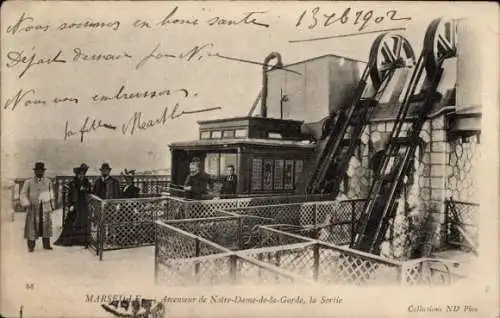 Nous sommes en bonne santé
13 7b 1902
Départ demain pour N
Nous vous embrassons
ta fille Marthe
88
MARSEILLE - Ascenseur de Notre-Dame-de-la-Garde, la Sortie
Collections ND Phot